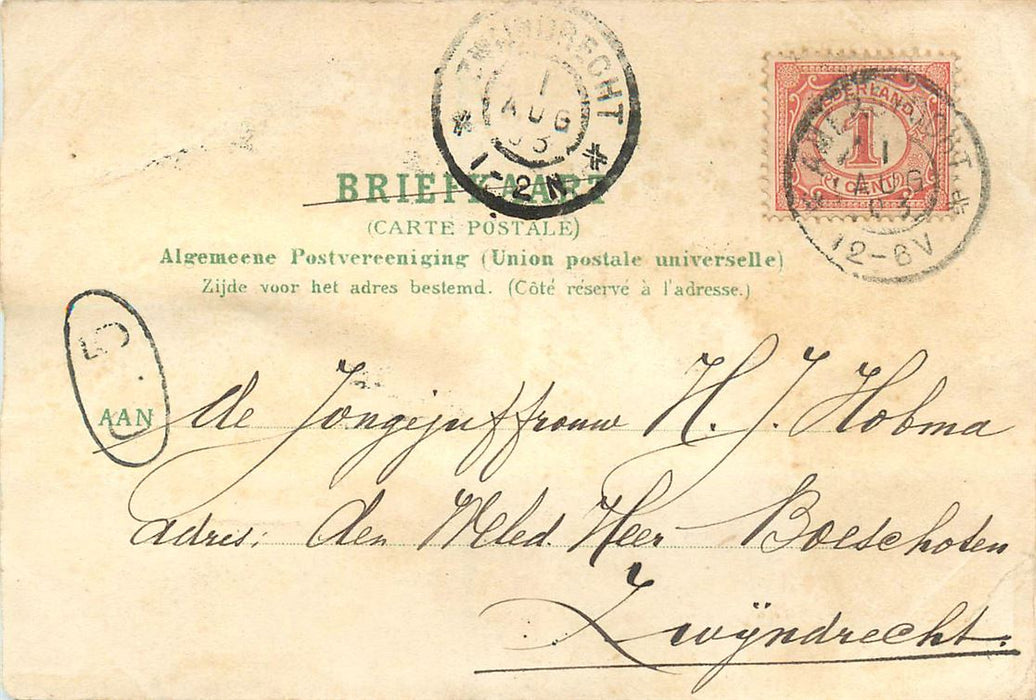 ZWIJNDRECHT
1
AUG
03
1-2N
NEDERLAND
1
CENT
1
AUG
12-6V
BRIEFKAART
(CARTE POSTALE)
Algemeene Postvereeniging (Union postale universelle)
Zijde voor het adres bestemd. (Côté réservé à l'adresse.)
5
AAN de Jongejuffrouw H. J. Hobma
adres: den Weled. Heer Boeschoten
Zwÿndrecht.